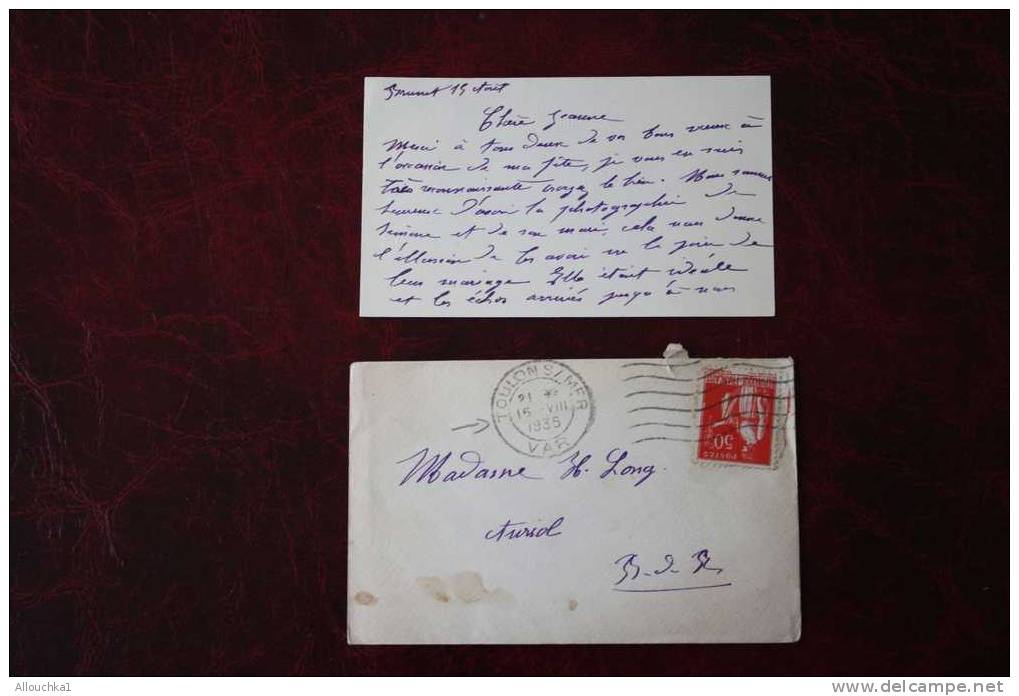 Brunet 15 Août
Chère Jeanne
Merci à tous deux de vos bons vœux à
l'occasion de ma fête, je vous en suis
très reconnaissante croyez le bien. Nous sommes
heureux d'avoir la photographie de
Simone et de son mari, cela nous donne
l'illusion de les avoir vu le jour de
leur mariage Elle était idéale
et les échos arrivés jusqu'à nous
TOULON S/MER
21 H
15 VIII
1935
VAR
POSTES
50c
Madame H. Long.
Auriol
B. d. R.
Allouchka1
www.delcampe.net